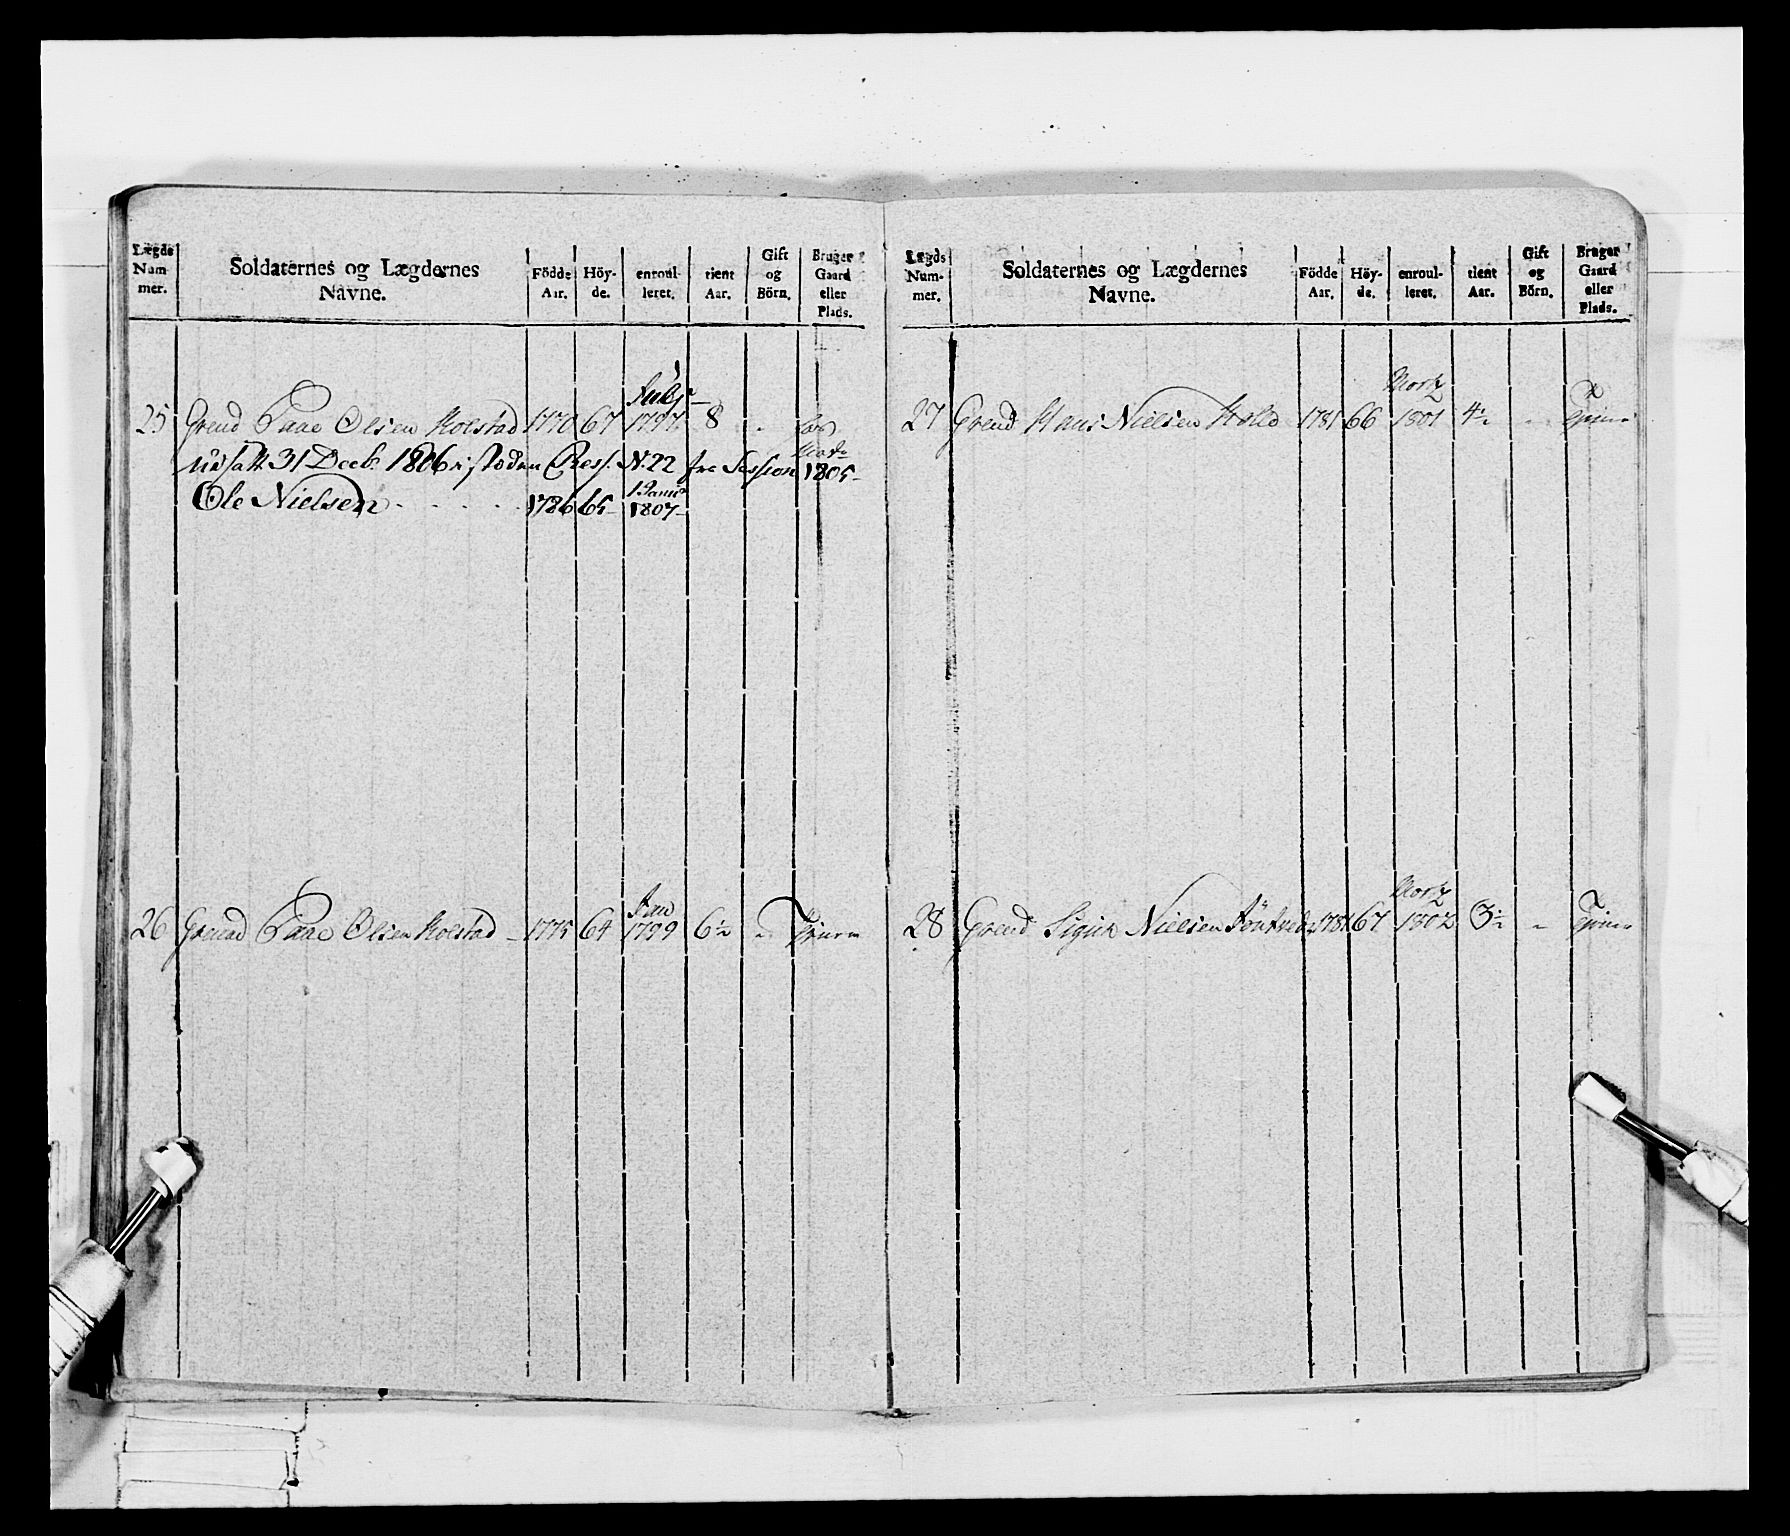 Lægds Num- mer.
Soldaternes og Lægdernes Navne.
Födde Aar.
Höy- de.
enroul- leret.
tient Aar.
Gift og Börn.
Bruger Gaard eller Plads.
25 Grend Olsen Kolstad 1770 67 1797 8
Udsatt 31 Decb. 1806 istæden Ress. N. 22 fra Session 1805
Ole Nielsen 1786 65 1 Janu 1807
26 Grenad Olsen Kolstad 1775 64 Jan 1799 6½
Lægds Num- mer.
Soldaternes og Lægdernes Navne.
Födde Aar.
Höy- de.
enroul- leret.
tient Aar.
Gift og Börn.
Bruger Gaard eller Plads.
27 Grend Hans Nielsen 1781 66 Martz 1801 4½
28 Grend Nielsen 1781 67 Martz 1802 3½